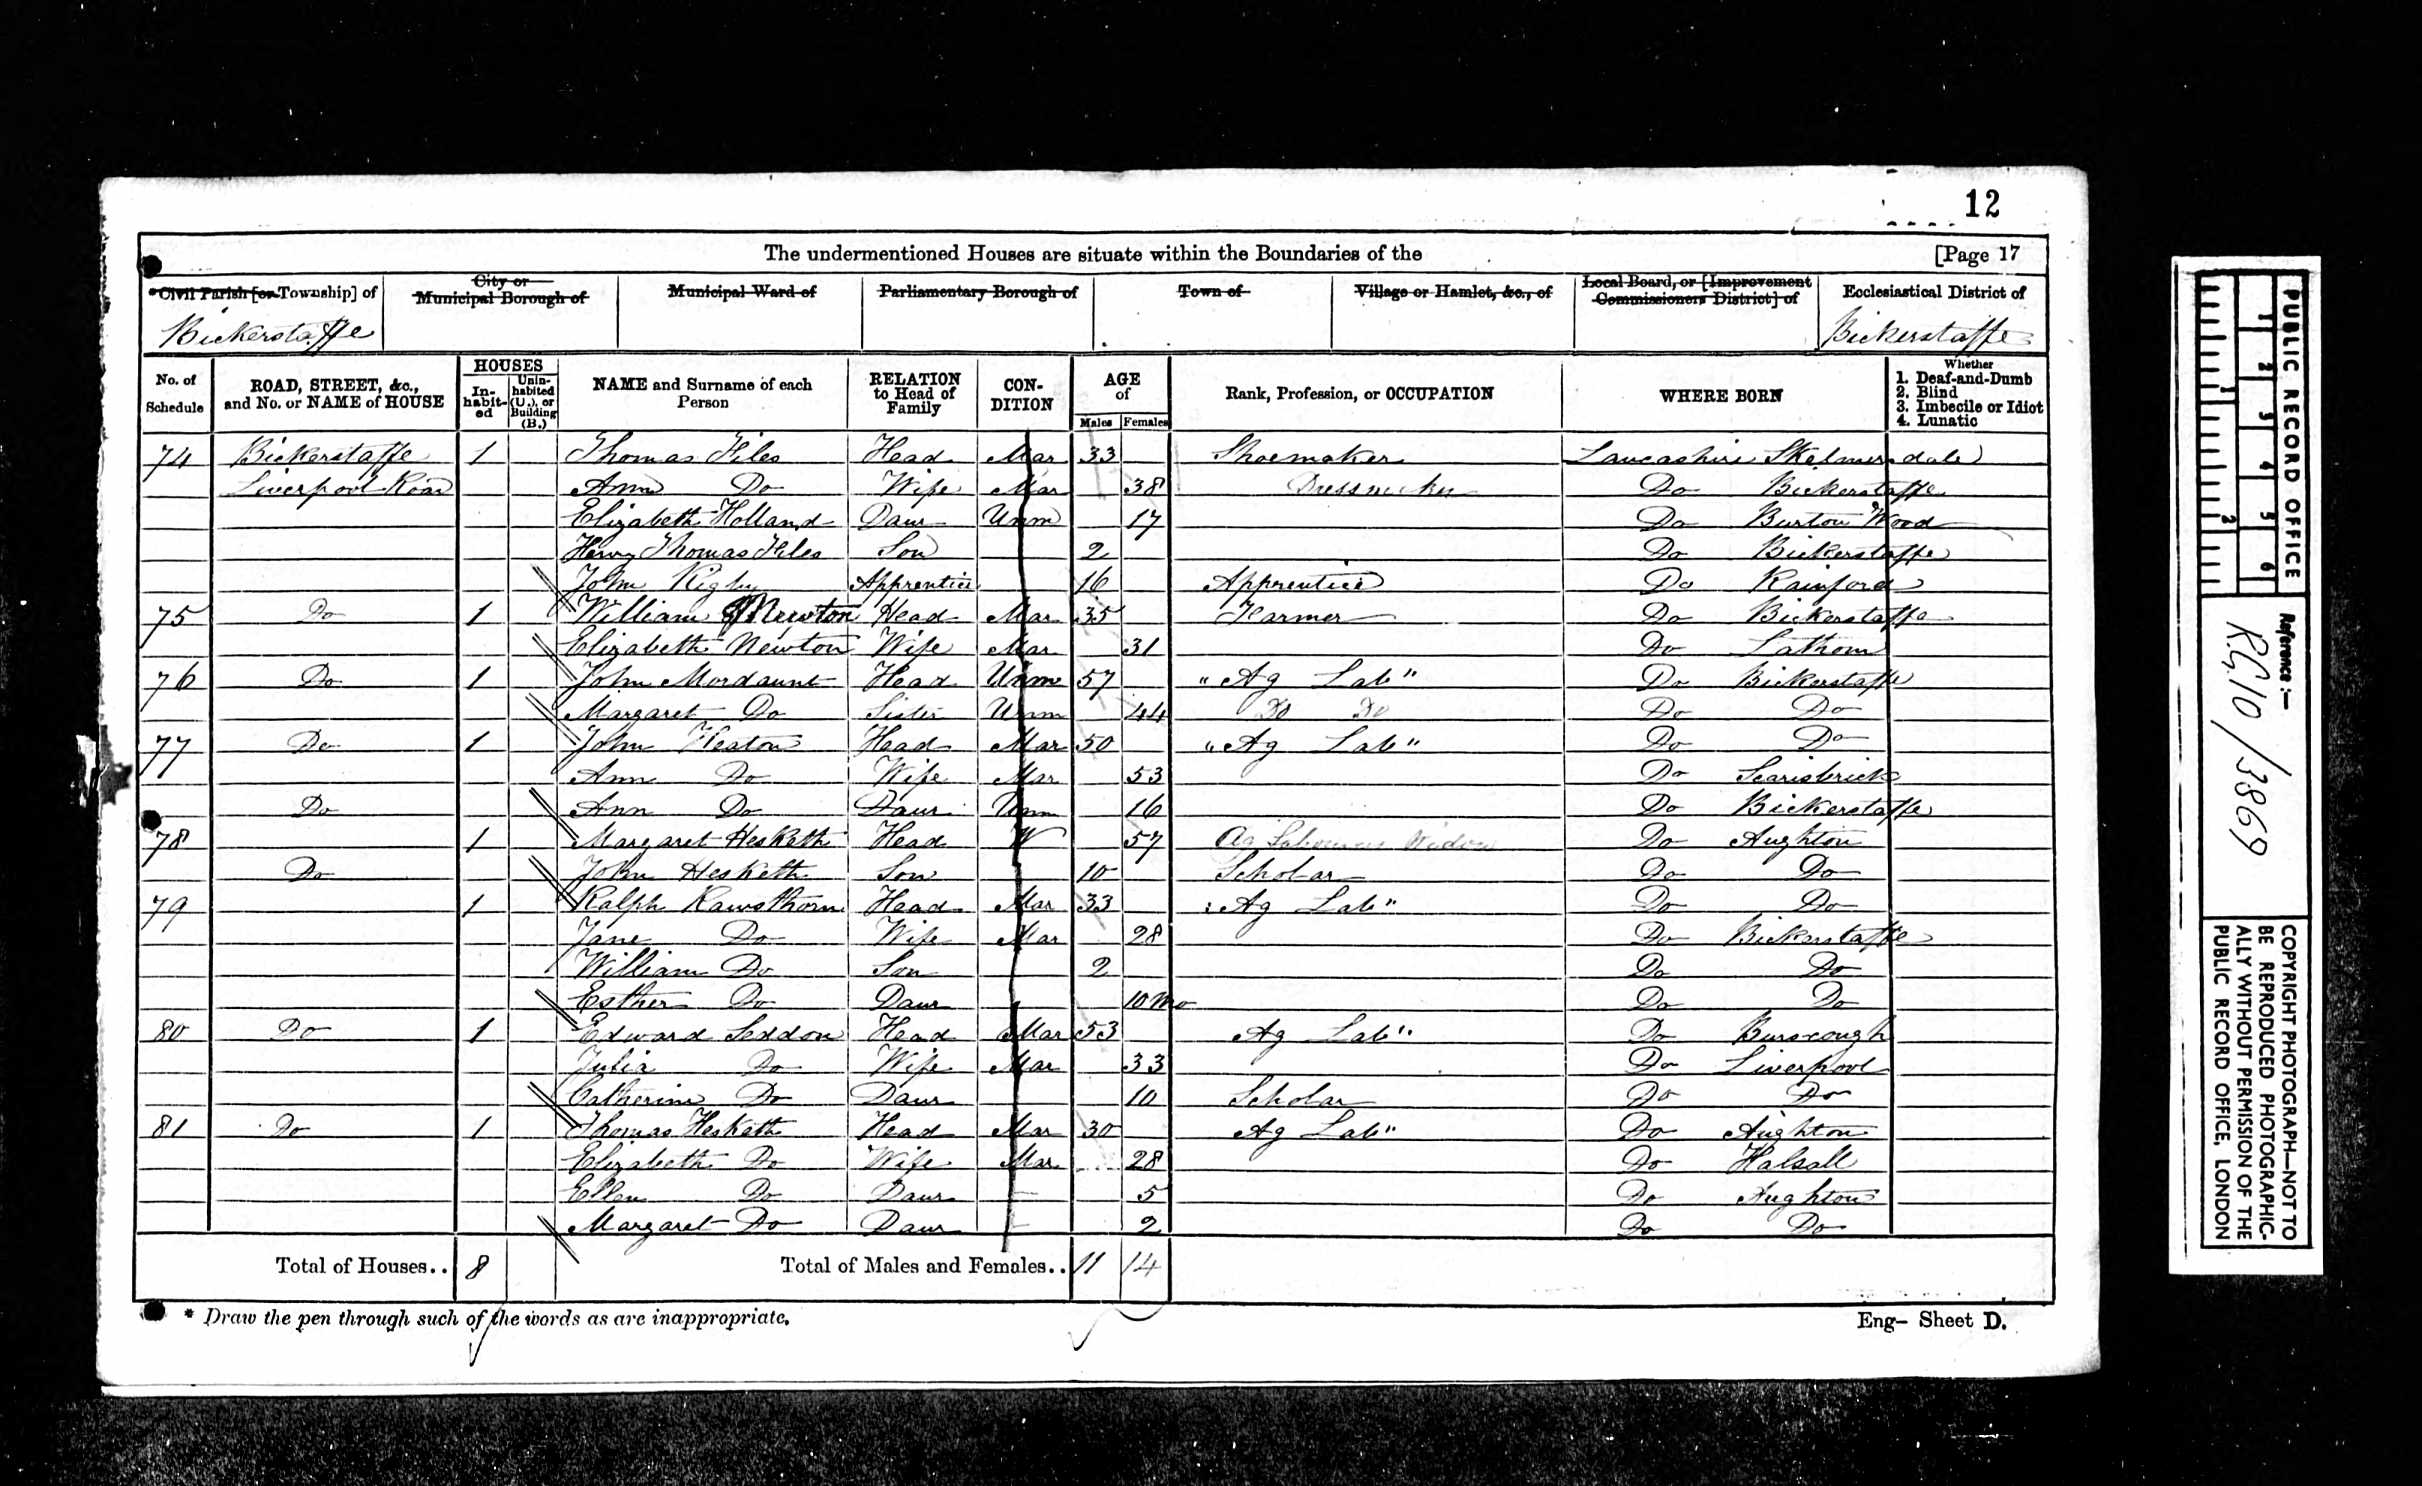 12
The undermentioned Houses are situate within the Boundaries of the [Page 17
*Civil Parish [or Township] of City or Municipal Borough of Municipal Ward of Parliamentary Borough of Town of Village or Hamlet, &c., of Local Board, or [Improvement Commissioners District] of Ecclesiastical District of
Bickerstaffe Bickerstaffe
No. of Schedule ROAD, STREET, &c., and No. or NAME of HOUSE HOUSES In-habit-ed Unin-habited (U.), or Building (B.) NAME and Surname of each Person RELATION to Head of Family CON-DITION AGE of Males Females Rank, Profession, or OCCUPATION WHERE BORN Whether 1. Deaf-and-Dumb 2. Blind 3. Imbecile or Idiot 4. Lunatic
74 Bickerstaffe 1 Thomas Head Mar 33 Shoemaker Lancashire Skelmersdale
Liverpool Road Ann Do Wife Mar 38 Dressmaker Do Bickerstaffe
Elizabeth Holland Daur Unm 17 Do Burton Wood
Henry Thomas Son 2 Do Bickerstaffe
John Rigby Apprentice 16 Apprentice Do Rainford
75 Do 1 William Newton Head Mar 35 Farmer Do Bickerstaffe
Elizabeth Newton Wife Mar 31 Do Lathom
76 Do 1 John Mordaunt Head Unm 57 "Ag Lab" Do Bickerstaffe
Margaret Do Sister Unm 44 Do Do Do Do
77 Do 1 John Heaton Head Mar 50 "Ag Lab" Do Do
Ann Do Wife Mar 53 Do Scarisbrick
Do Ann Do Daur Unm 16 Do Bickerstaffe
78 1 Margaret Hesketh Head W 57 Ag Labourers Widow Do Aughton
Do John Hesketh Son 10 Scholar Do Do
79 1 Ralph Rawsthorn Head Mar 33 "Ag Lab" Do Do
Jane Do Wife Mar 28 Do Bickerstaffe
William Do Son 2 Do Do
Esther Do Daur 10 Mo Do Do
80 Do 1 Edward Seddon Head Mar 53 Ag Lab" Do Burscough
Julia Do Wife Mar 33 Do Liverpool
Catherine Do Daur 10 Scholar Do Do
81 Do 1 Thomas Hesketh Head Mar 30 Ag Lab" Do Aughton
Elizabeth Do Wife Mar 28 Do Halsall
Ellen Do Daur 5 Do Aughton
Margaret Do Daur 2 Do Do
Total of Houses.. 8 Total of Males and Females.. 11 14
* Draw the pen through such of the words as are inappropriate. Eng- Sheet D.
PUBLIC RECORD OFFICE
1 2 3 4 5 6
1 2
Reference:-
R.G.10/3869
COPYRIGHT PHOTOGRAPH-NOT TO
BE REPRODUCED PHOTOGRAPHIC-
ALLY WITHOUT PERMISSION OF THE
PUBLIC RECORD OFFICE, LONDON